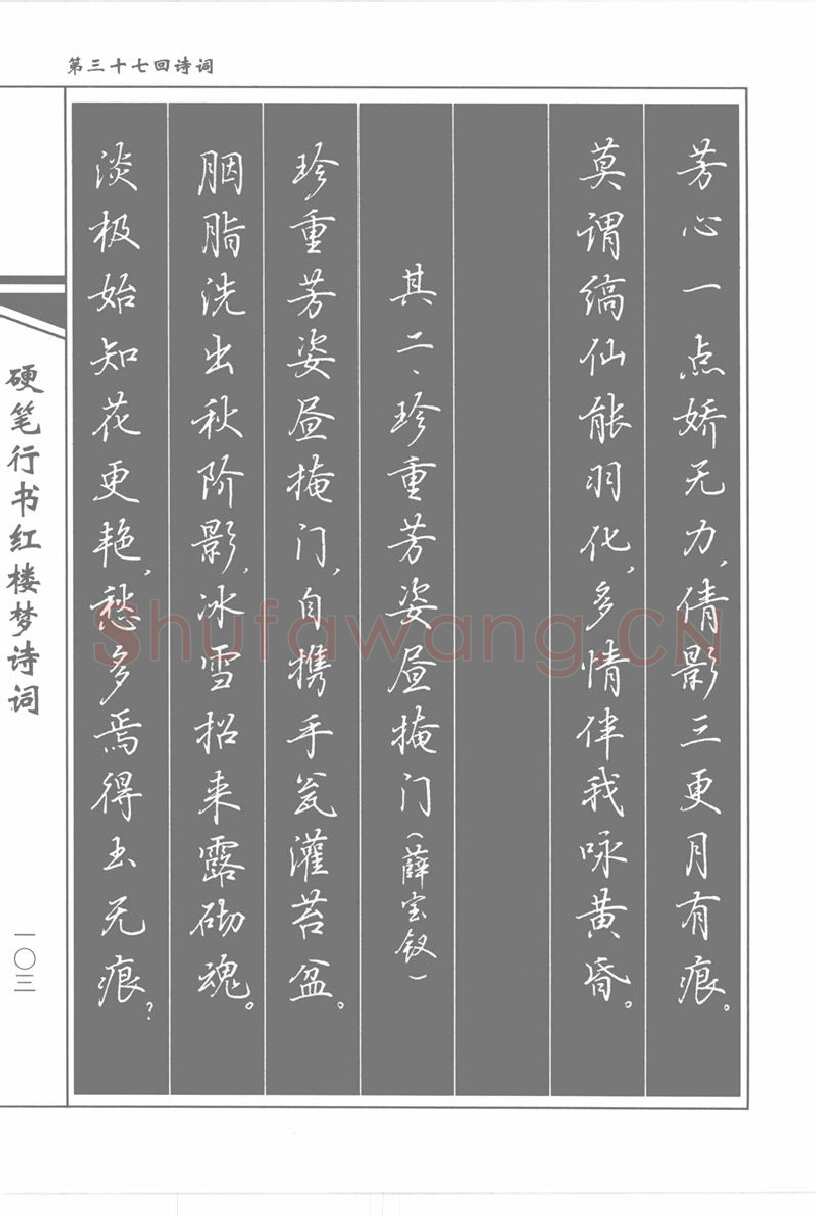 第三十七回诗词
芳心一点娇无力，倩影三更月有痕。
莫谓缟仙能羽化，多情伴我咏黄昏。
其二、珍重芳姿昼掩门（薛宝钗）
珍重芳姿昼掩门，自携手瓮灌苔盆。
胭脂洗出秋阶影，冰雪招来露砌魂。
淡极始知花更艳，愁多焉得玉无痕？
硬笔行书红楼梦诗词
一〇三
Shufawang.CN